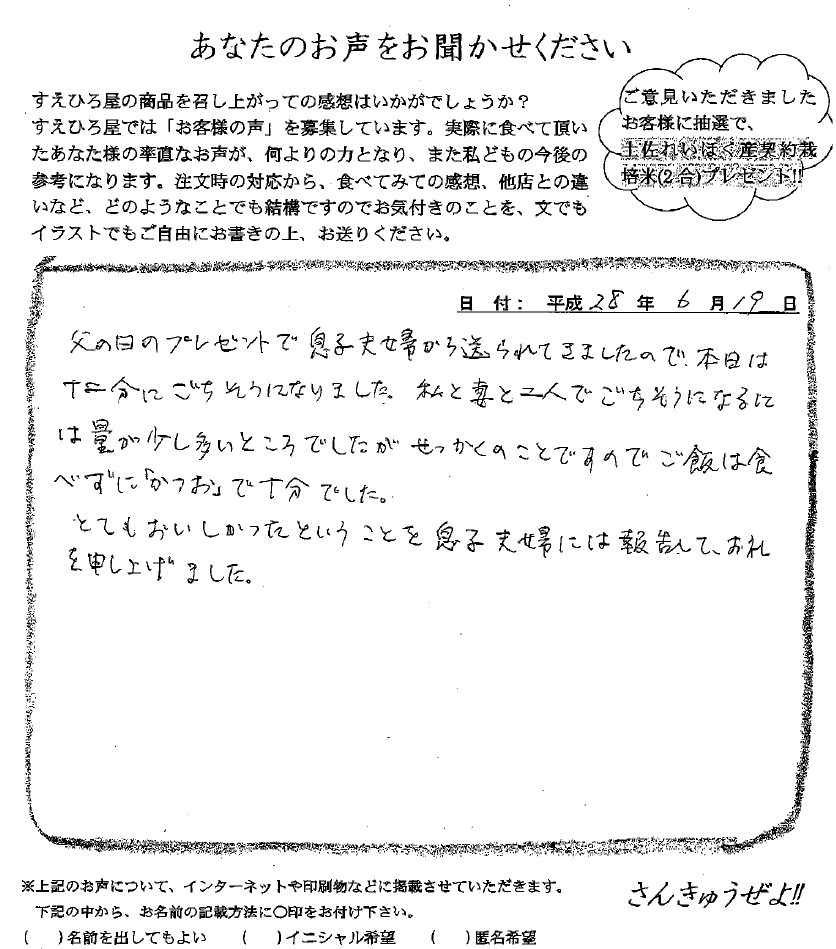 あなたのお声をお聞かせください
すえひろ屋の商品を召し上がっての感想はいかがでしょうか？
すえひろ屋では「お客様の声」を募集しています。実際に食べて頂い
たあなた様の率直なお声が、何よりの力となり、また私どもの今後の
参考になります。注文時の対応から、食べてみての感想、他店との違
いなど、どのようなことでも結構ですのでお気付きのことを、文でも
イラストでもご自由にお書きの上、お送りください。
ご意見いただきました
お客様に抽選で、
土佐れいほく産契約栽
培米(2合)プレゼント!!
日 付： 平成 28 年 6 月 19 日
父の日のプレゼントで息子夫婦から送られてきましたので、本日は
十二分にごちそうになりました。私と妻と二人でごちそうになるに
は量が少し多いところでしたがせっかくのことですのでご飯は食
べずに「かつお」で十分でした。
とてもおいしかったということを息子夫婦には報告して、お礼
を申し上げました。
※上記のお声について、インターネットや印刷物などに掲載させていただきます。
下記の中から、お名前の記載方法に〇印をお付け下さい。
(　)名前を出してもよい　(　)イニシャル希望　(　)匿名希望
さんきゅうぜよ!!